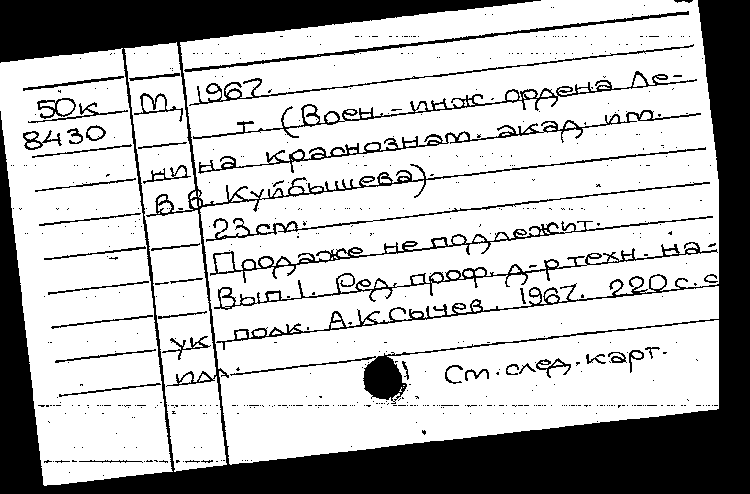 50к М., 1967.
8430 т. (Воен.-инж. ордена Ле-
нина краснознам. акад. им.
В.В. Куйбышева).
23 см.
Продаже не подлежит.
Вып.1. Ред. проф. д-р техн. на-
ук, полк. А.К.Сычев. 1967. 220 с. с
илл.
См.след.карт.